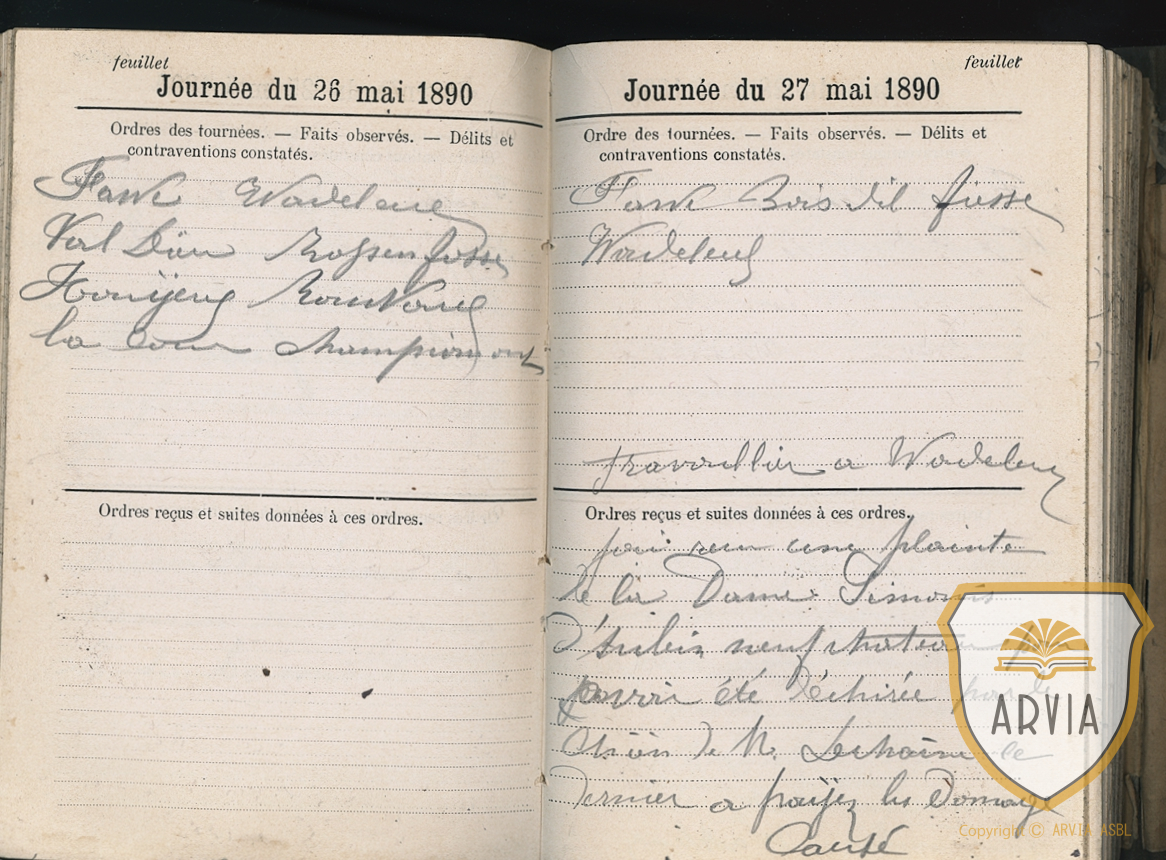 feuillet
Journée du 26 mai 1890
Ordres des tournées. — Faits observés. — Délits et
contraventions constatés.
Wadeleux
Val Dieu Rossenfosse
la cour championmont
Ordres reçus et suites données à ces ordres.
feuillet
Journée du 27 mai 1890
Ordre des tournées. — Faits observés. — Délits et
contraventions constatés.
Bois del fosse
Wadeleux
travaillier a Wadeleux
Ordres reçus et suites données à ces ordres.
jai recu une plainte
de la Dame Simonis
neufchateau
avoir été déchirée par le
chien de M. le
dernier a paijez les domage
Causé
ARVIA
Copyright © ARVIA ASBL